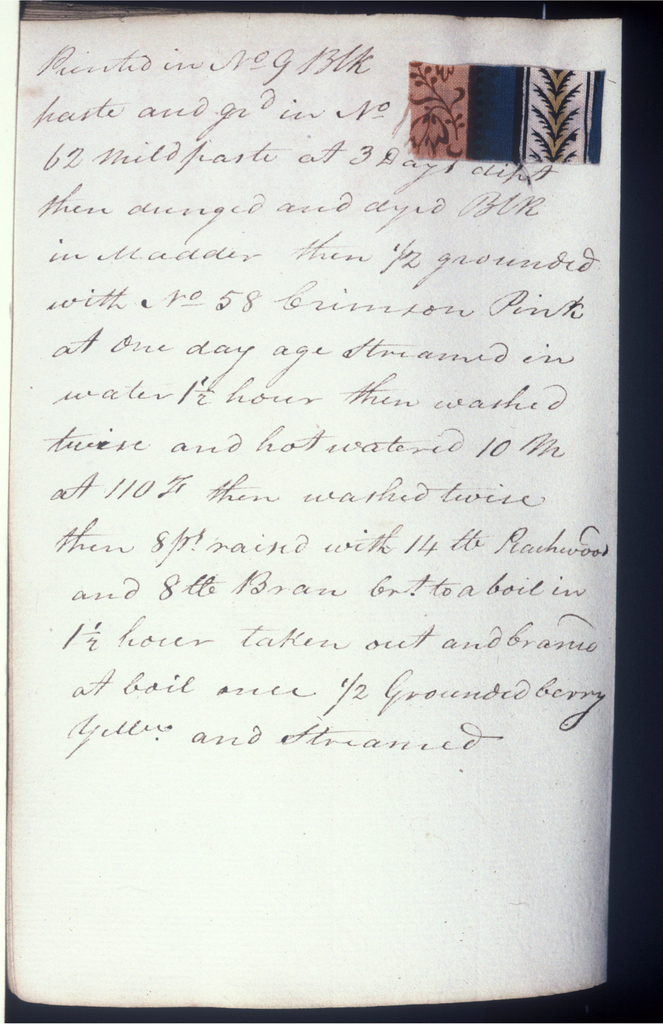 Printed in No 9 Blk
paste and grd in No
62 Mild paste at 3 Days dipt
then dunged and dyed Blk
in Madder then 1/2 grounded
with No 58 Crimson Pink
at one day age Streamed in
water 1½ hour then washed
twise and hot watered 10 M
at 110 F then washed twise
then 8 ps raised with 14 lb Peachwood
and 8 lb Bran brt to a boil in
1½ hour taken out and braned
at boil once 1/2 Grounded berry
Yellow and Streamed